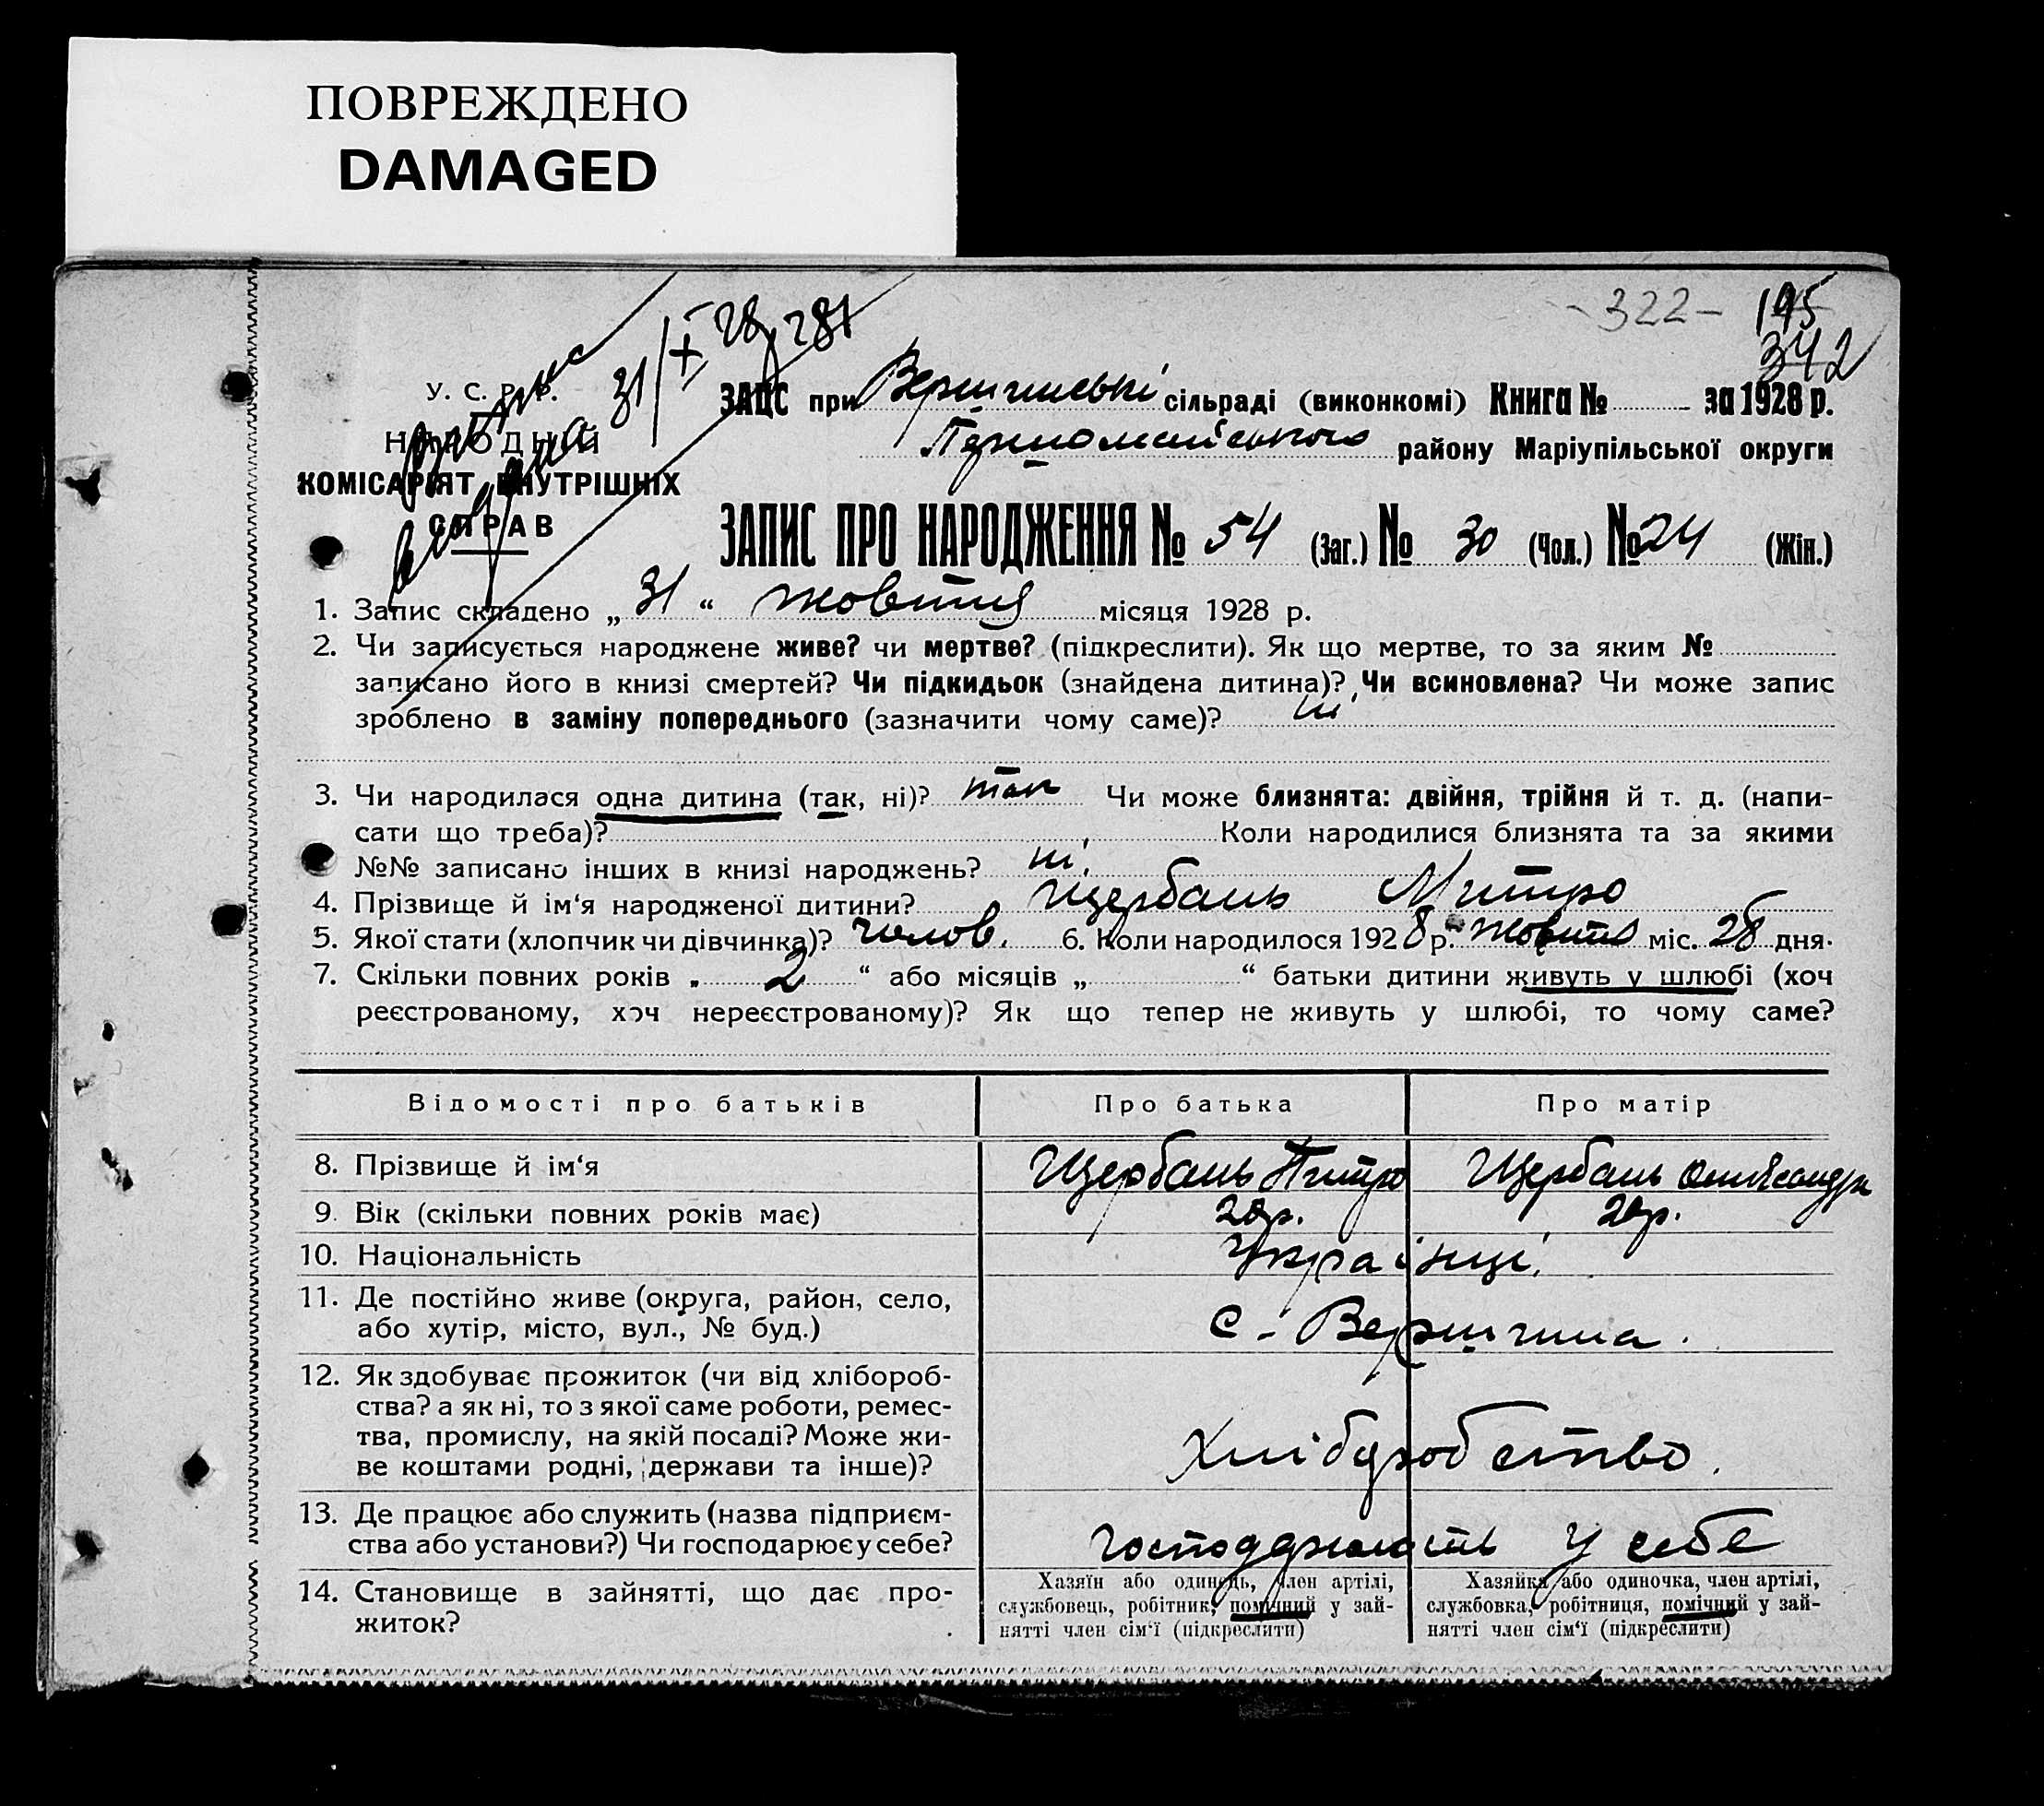 ПОВРЕЖДЕНО
DAMAGED
-322- 195
342
31/X 28 р 281
Виписка
видана
У. С. Р. Р.
НАРОДНІЙ
КОМІСАРІЯТ ВНУТРІШНІХ
СПРАВ
ЗАЦС при Вершинській сільраді (виконкомі) Книга № за 1928 р.
Першомайського району Маріупільської округи
ЗАПИС ПРО НАРОДЖЕННЯ № 54 (Заг.) № 30 (Чол.) № 24 (Жін.)
1. Запис складено „ 31 “ жовтня місяця 1928 р.
2. Чи записується народжене живе? чи мертве? (підкреслити). Як що мертве, то за яким №
записано його в книзі смертей? Чи підкидьок (знайдена дитина)? Чи всиновлена? Чи може запис
зроблено в заміну попереднього (зазначити чому саме)? ні
3. Чи народилася одна дитина (так, ні)? так Чи може близнята: двійня, трійня й т. д. (напи-
сати що треба)? Коли народилися близнята та за якими
№№ записано інших в книзі народжень? ні
4. Прізвище й ім‘я народженої дитини? Щербань Митро
5. Якої стати (хлопчик чи дівчинка)? чолов. 6. Коли народилося 1928 р. жовтня міс. 28 дня.
7. Скільки повних років „ 2 “ або місяців „ “ батьки дитини живуть у шлюбі (хоч
реєстрованому, хоч нереєстрованому)? Як що тепер не живуть у шлюбі, то чому саме?
Відомості про батьків Про батька Про матір
8. Прізвище й ім‘я Щербань Питро Щербань Олександра
9. Вік (скільки повних років має) р. р.
10. Національність Українці.
11. Де постійно живе (округа, район, село,
або хутір, місто, вул., № буд.) с-Вершина.
12. Як здобуває прожиток (чи від хлібороб-
ства? а як ні, то з якої саме роботи, ремес-
тва, промислу, на якій посаді? Може жи-
ве коштами родні, держави та інше)? Хлібуробство.
13. Де працює або служить (назва підприєм-
ства або установи?) Чи господарює у себе? господарюють у себе
14. Становище в зайнятті, що дає про-
житок?
Хазяїн або одинець, член артілі,
службовець, робітник, помічний у зай-
нятті член сім‘ї (підкреслити)
Хазяйка або одиночка, член артілі,
службовка, робітниця, помічний у зай-
нятті член сім‘ї (підкреслити)